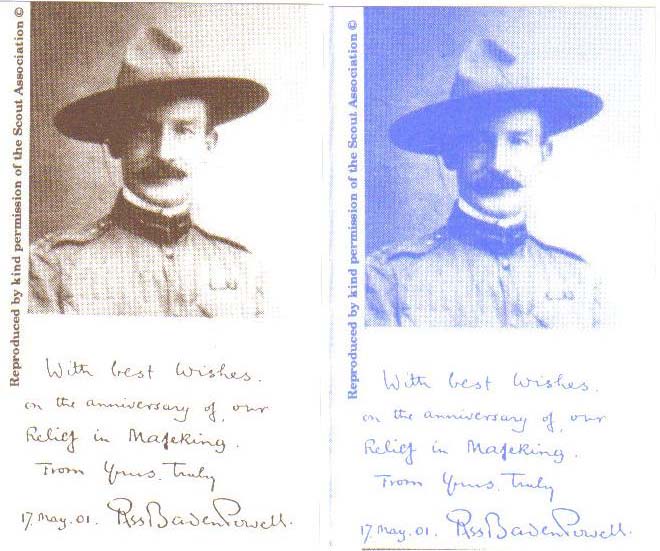 Reproduced by kind permission of the Scout Association ©
With best wishes.
on the anniversary of our
Relief in Mafeking.
From Yours. Truly
17. May. 01. RSS Baden Powell.
Reproduced by kind permission of the Scout Association ©
With best wishes.
on the anniversary of our
Relief in Mafeking.
From Yours. Truly
17. May. 01. RSS Baden Powell.